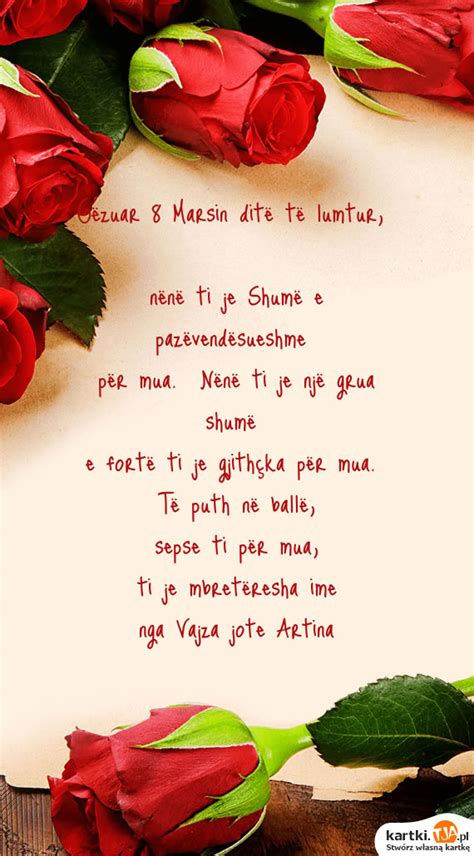 Gëzuar 8 Marsin ditë të lumtur,
nënë ti je Shumë e
pazëvendësueshme
për mua. Nënë ti je një grua
shumë
e fortë ti je gjithçka për mua.
Të puth në ballë,
sepse ti për mua,
ti je mbretëresha ime
nga Vajza jote Artina
kartki.TJA.pl
Stwórz własną kartkę